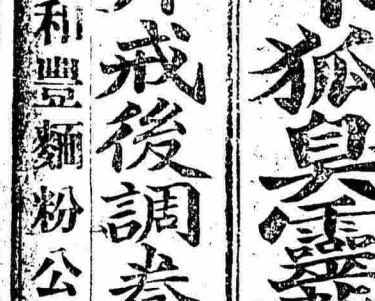 狐臭靈
戒後調養
和豐麵粉公